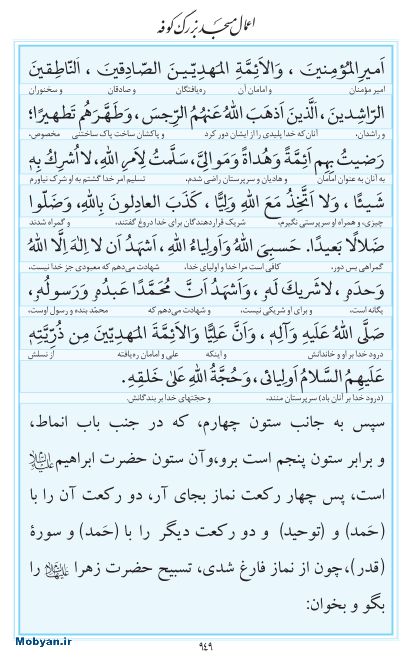 اعمال مسجد بزرگ کوفه
اَمیرِالْمُؤمِنینَ ، وَالْاَئِمَّةِ الْمَهدِیّینَ الصّادِقینَ ، اَلنّاطِقینَ
امیر مؤمنان و امامان آن ره‌یافتگان و صادقان و سخنوران
الرّاشِدینَ، اَلَّذینَ اَذهَبَ اللهُ عَنهُمُ الرِّجسَ، وَطَهَّرَهُم تَطهیرًا؛
و راشدان. آنان که خدا پلیدی را از ایشان دور کرد و پاکشان ساخت پاک ساختنی مخصوص.
رَضیتُ بِهِم اَئِمَّةً وَهُداةً وَمَوالِیَّ، سَلَّمتُ لِاَمرِ اللهِ، لااُشرِكُ بِهِ
به آنان به عنوان امامان و هادیان و سرپرستان راضی شدم. تسلیم امر خدا گشتم به او شرک نیاورم
شَیئًا ، وَ لا اَتَّخِذُ مَعَ اللهِ وَلِیًّا ، كَذَبَ العادِلونَ بِاللهِ، وَضَلّوا
چیزی، و همراه او سرپرستی نگیرم، شریک قراردهندگان برای خدا دروغ گفتند، و گمراه شدند
ضَلالًا بَعیدًا. حَسبِیَ اللهُ وَاَولِیاءُ اللهِ ، اَشهَدُ اَن لا اِلٰهَ اِلَّا اللهُ
گمراهی بس دور. کافی است مرا خدا و اولیای خدا، شهادت می‌دهم که معبودی جز خدا نیست،
وَحدَهُ ، لاشَریكَ لَهُ ، وَاَشهَدُ اَنَّ مُحَمَّدًا عَبدُهُ وَرَسولُهُ،
یگانه است، و برای او شریکی نیست، و شهادت می‌دهم که محمّد بنده و رسول اوست،
صَلَّی اللهُ عَلَیهِ وَآلِهِ ، وَاَنَّ عَلِیًّا وَالْاَئِمَّةَ الْمَهدِیّینَ مِن ذُرِّیَّتِهِ
درود خدا بر او و خاندانش و اینکه علی و امامان ره‌یافته از نسلش
عَلَیهِمُ السَّلامُ اَولِیائی، وَحُجَّةُ اللهِ عَلیٰ خَلقِهِ.
(درود خدا بر آنان باد) سرپرستان منند، و حجّتهای خدا بر بندگانش.
سپس به جانب ستون چهارم، که در جنب باب انماط،
و برابر ستون پنجم است برو،وآن ستون حضرت ابراهیم علیه السلام
است، پس چهار رکعت نماز بجای آر، دو رکعت آن را با
(حَمد) و (توحید) و دو رکعت دیگر را با (حَمد) و سورهٔ
(قدر)،چون از نماز فارغ شدی، تسبیح حضرت زهرا علیها السلام را
بگو و بخوان:
۹۴۹
Mobyan.ir